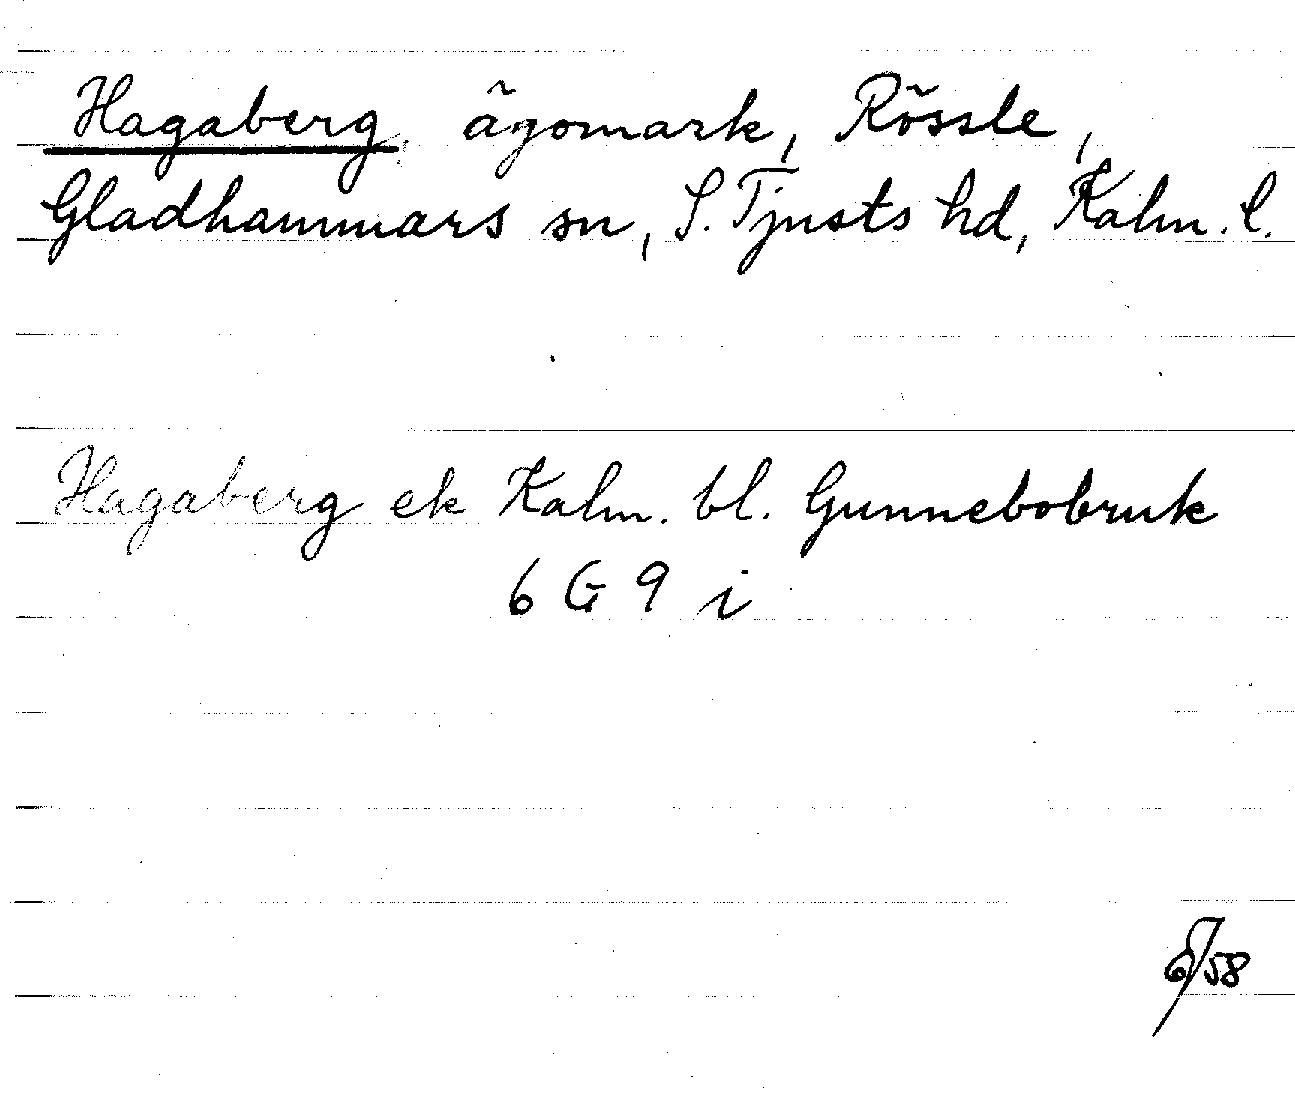 Hagaberg, ägomark, Rössle,
Gladhammars sn, S. Tjusts hd, Kalm. l.
Hagaberg ek Kalm. bl. Gunnebobruk
6 G 9 i
6/58